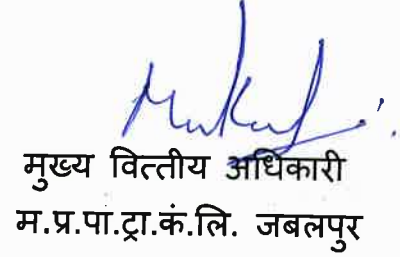 मुख्य वित्तीय अधिकारी
म.प्र.पा.ट्रा.कं.लि. जबलपुर